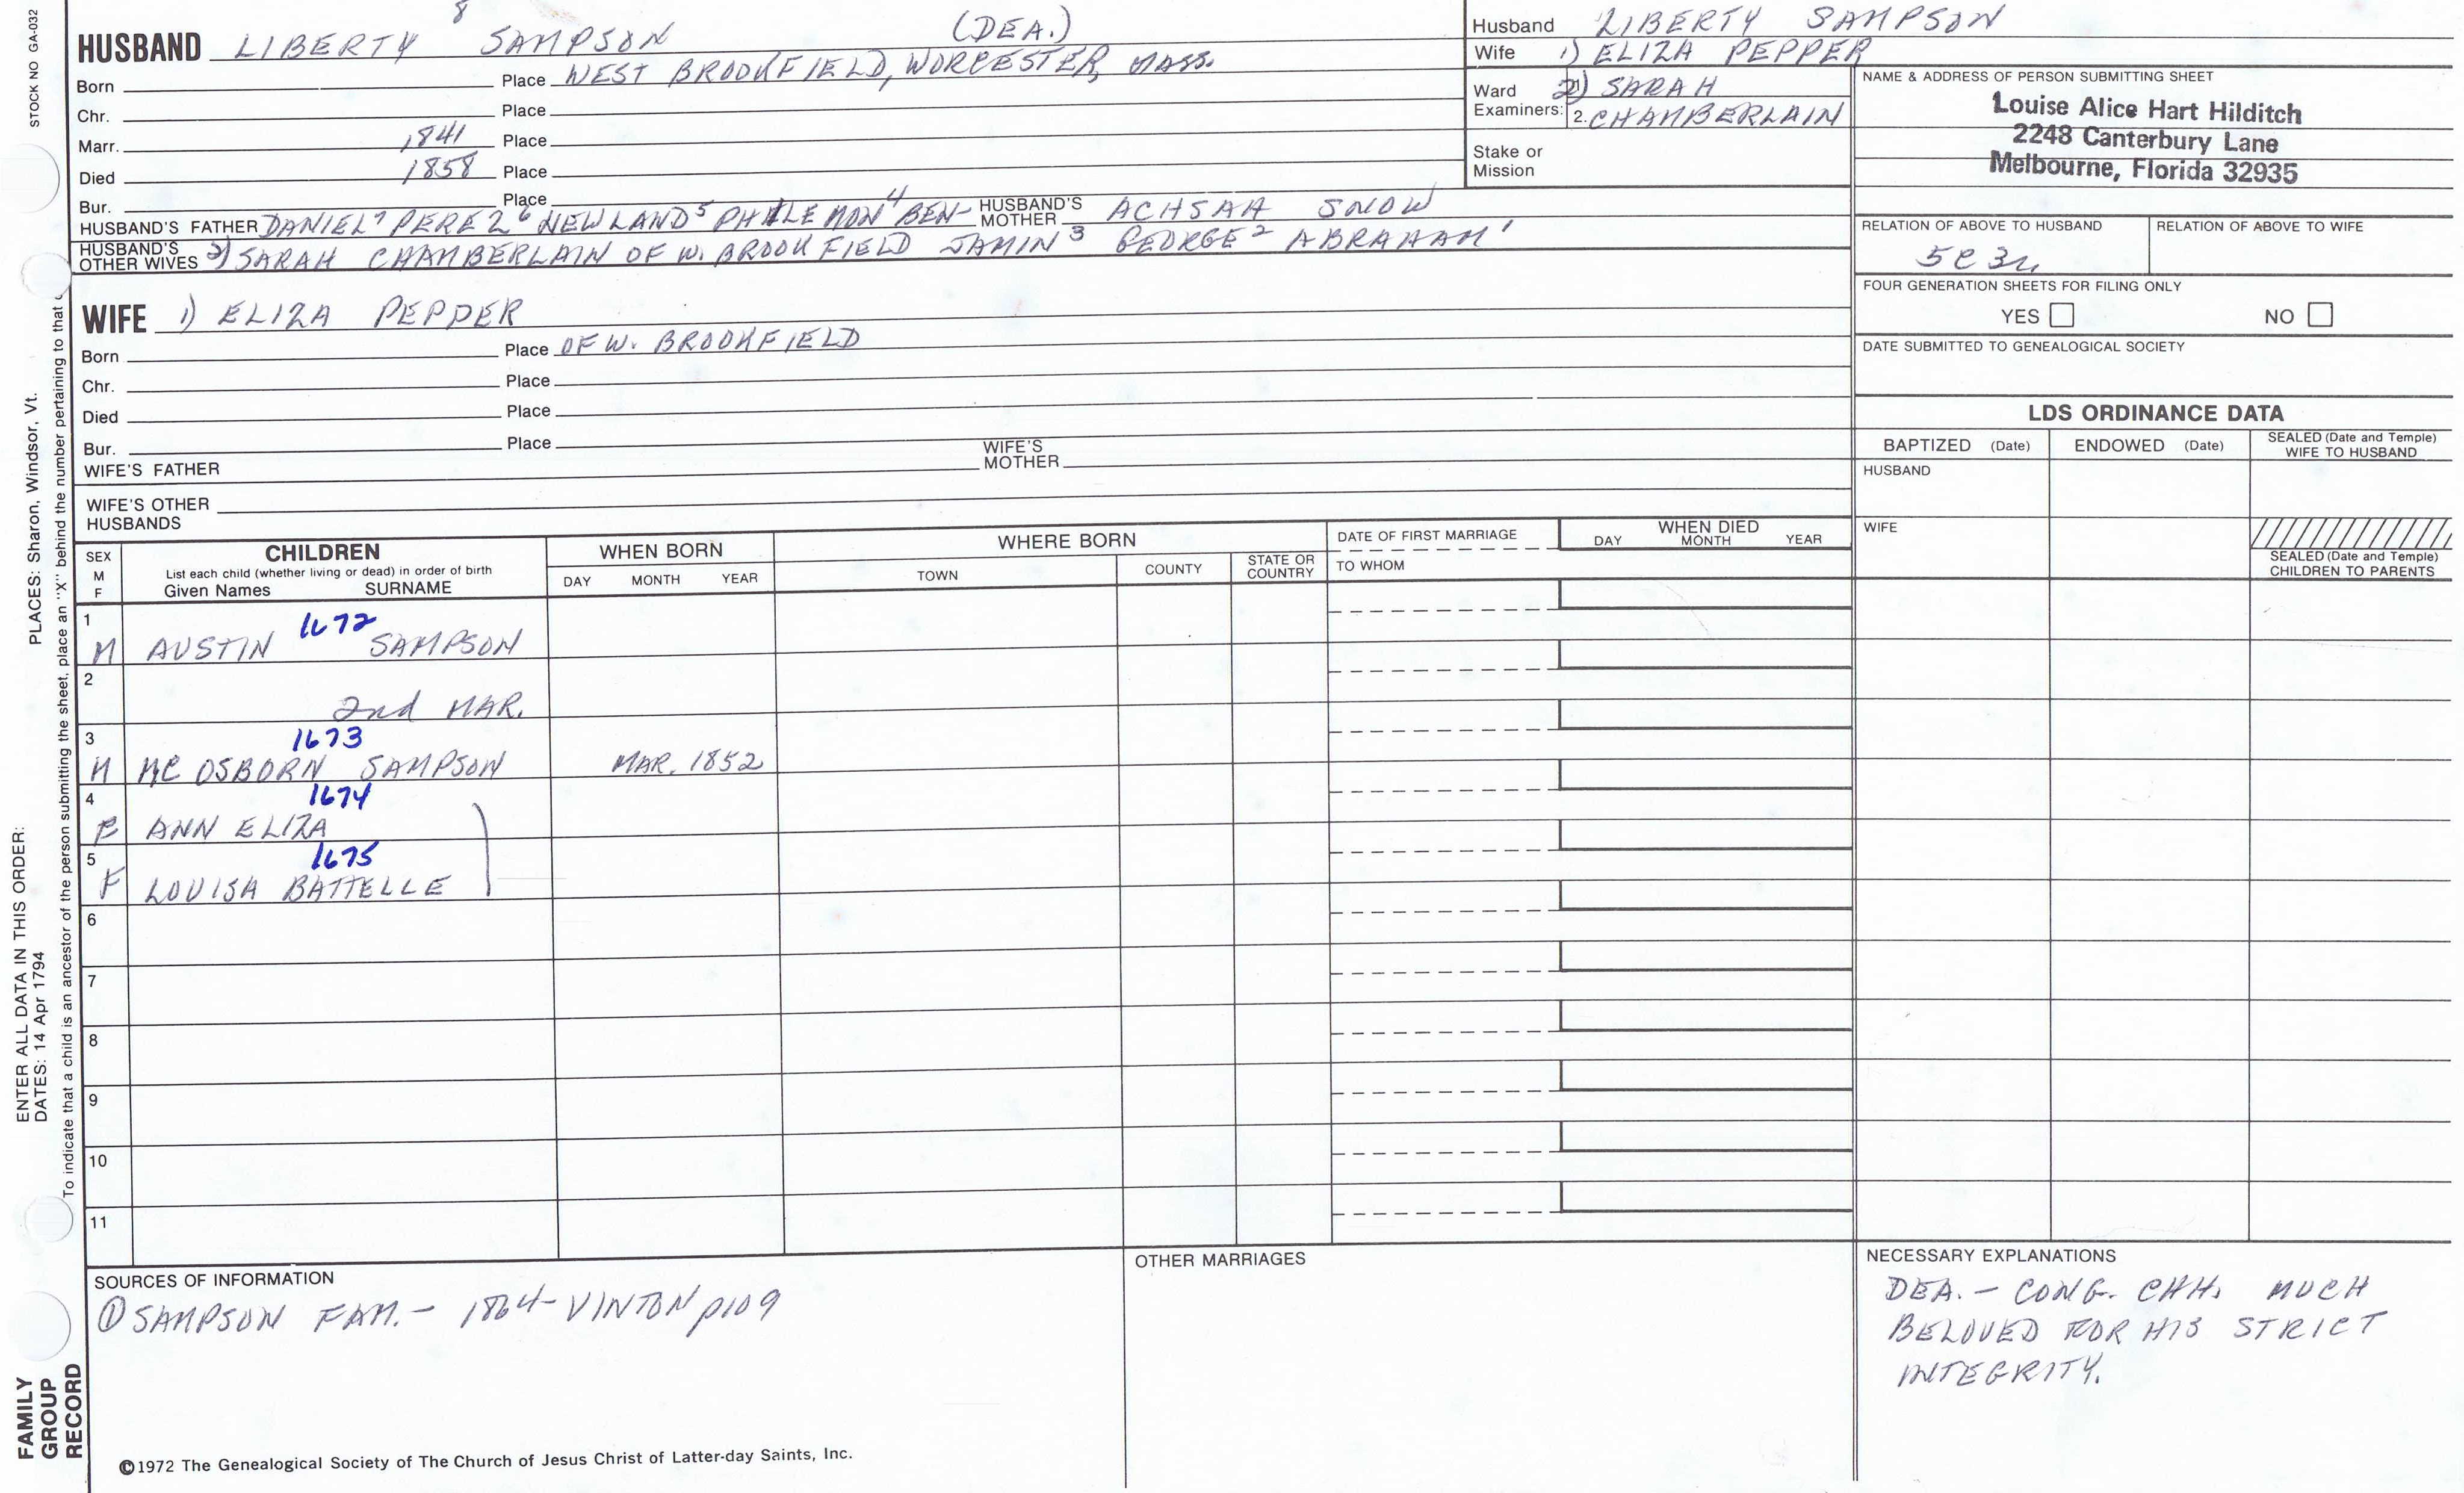 STOCK NO GA-032
8
HUSBAND LIBERTY SAMPSON (DEA.)
Born Place WEST BROOKFIELD, WORCESTER, MASS.
Chr. Place
Marr. 1841 Place
Died 1858 Place
Bur. Place
HUSBAND'S FATHER DANIEL7 PEREZ6 NEWLAND5 PHILEMON4 BEN- HUSBAND'S MOTHER ACHSAH SNOW
HUSBAND'S OTHER WIVES 2) SARAH CHAMBERLAIN OF W. BROOKFIELD JAMIN3 GEORGE2 ABRAHAM1
Husband LIBERTY SAMPSON
Wife 1) ELIZA PEPPER
Ward Examiners: 2) SARAH
2. CHAMBERLAIN
Stake or Mission
NAME & ADDRESS OF PERSON SUBMITTING SHEET
Louise Alice Hart Hilditch
2248 Canterbury Lane
Melbourne, Florida 32935
RELATION OF ABOVE TO HUSBAND RELATION OF ABOVE TO WIFE
5C3R
FOUR GENERATION SHEETS FOR FILING ONLY
YES NO
DATE SUBMITTED TO GENEALOGICAL SOCIETY
WIFE 1) ELIZA PEPPER
Born Place OF W. BROOKFIELD
Chr. Place
Died Place
Bur. Place
WIFE'S FATHER WIFE'S MOTHER
WIFE'S OTHER HUSBANDS
LDS ORDINANCE DATA
BAPTIZED (Date) ENDOWED (Date) SEALED (Date and Temple) WIFE TO HUSBAND
HUSBAND
WIFE
SEALED (Date and Temple) CHILDREN TO PARENTS
SEX M F CHILDREN List each child (whether living or dead) in order of birth Given Names SURNAME
WHEN BORN DAY MONTH YEAR
WHERE BORN TOWN COUNTY STATE OR COUNTRY
DATE OF FIRST MARRIAGE TO WHOM
WHEN DIED DAY MONTH YEAR
1 1672
M AUSTIN SAMPSON
2
2nd MAR.
3 1673
M MC OSBORN SAMPSON MAR. 1852
4 1674
F ANN ELIZA
5 1675
F LOUISA BATTELLE
6
7
8
9
10
11
SOURCES OF INFORMATION
① SAMPSON FAM. - 1864 - VINTON p109
OTHER MARRIAGES
NECESSARY EXPLANATIONS
DEA. - CONG. CHH. MUCH
BELOVED FOR HIS STRICT
INTEGRITY.
©1972 The Genealogical Society of The Church of Jesus Christ of Latter-day Saints, Inc.
FAMILY GROUP RECORD
ENTER ALL DATA IN THIS ORDER:
DATES: 14 Apr 1794 PLACES: Sharon, Windsor, Vt.
To indicate that a child is an ancestor of the person submitting the sheet, place an "X" behind the number pertaining to that